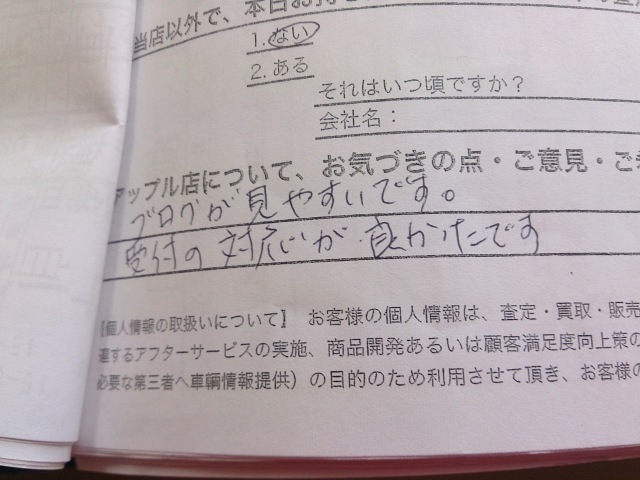 当店以外で、本日お持
1. ない
2. ある
それはいつ頃ですか？
会社名：
アップル店について、お気づきの点・ご意見・ご希
ブログが見やすいです。
受付の対応が良かったです
【個人情報の取扱いについて】 お客様の個人情報は、査定・買取・販売
連するアフターサービスの実施、商品開発あるいは顧客満足度向上策の
必要な第三者へ車輌情報提供）の目的のため利用させて頂き、お客様の